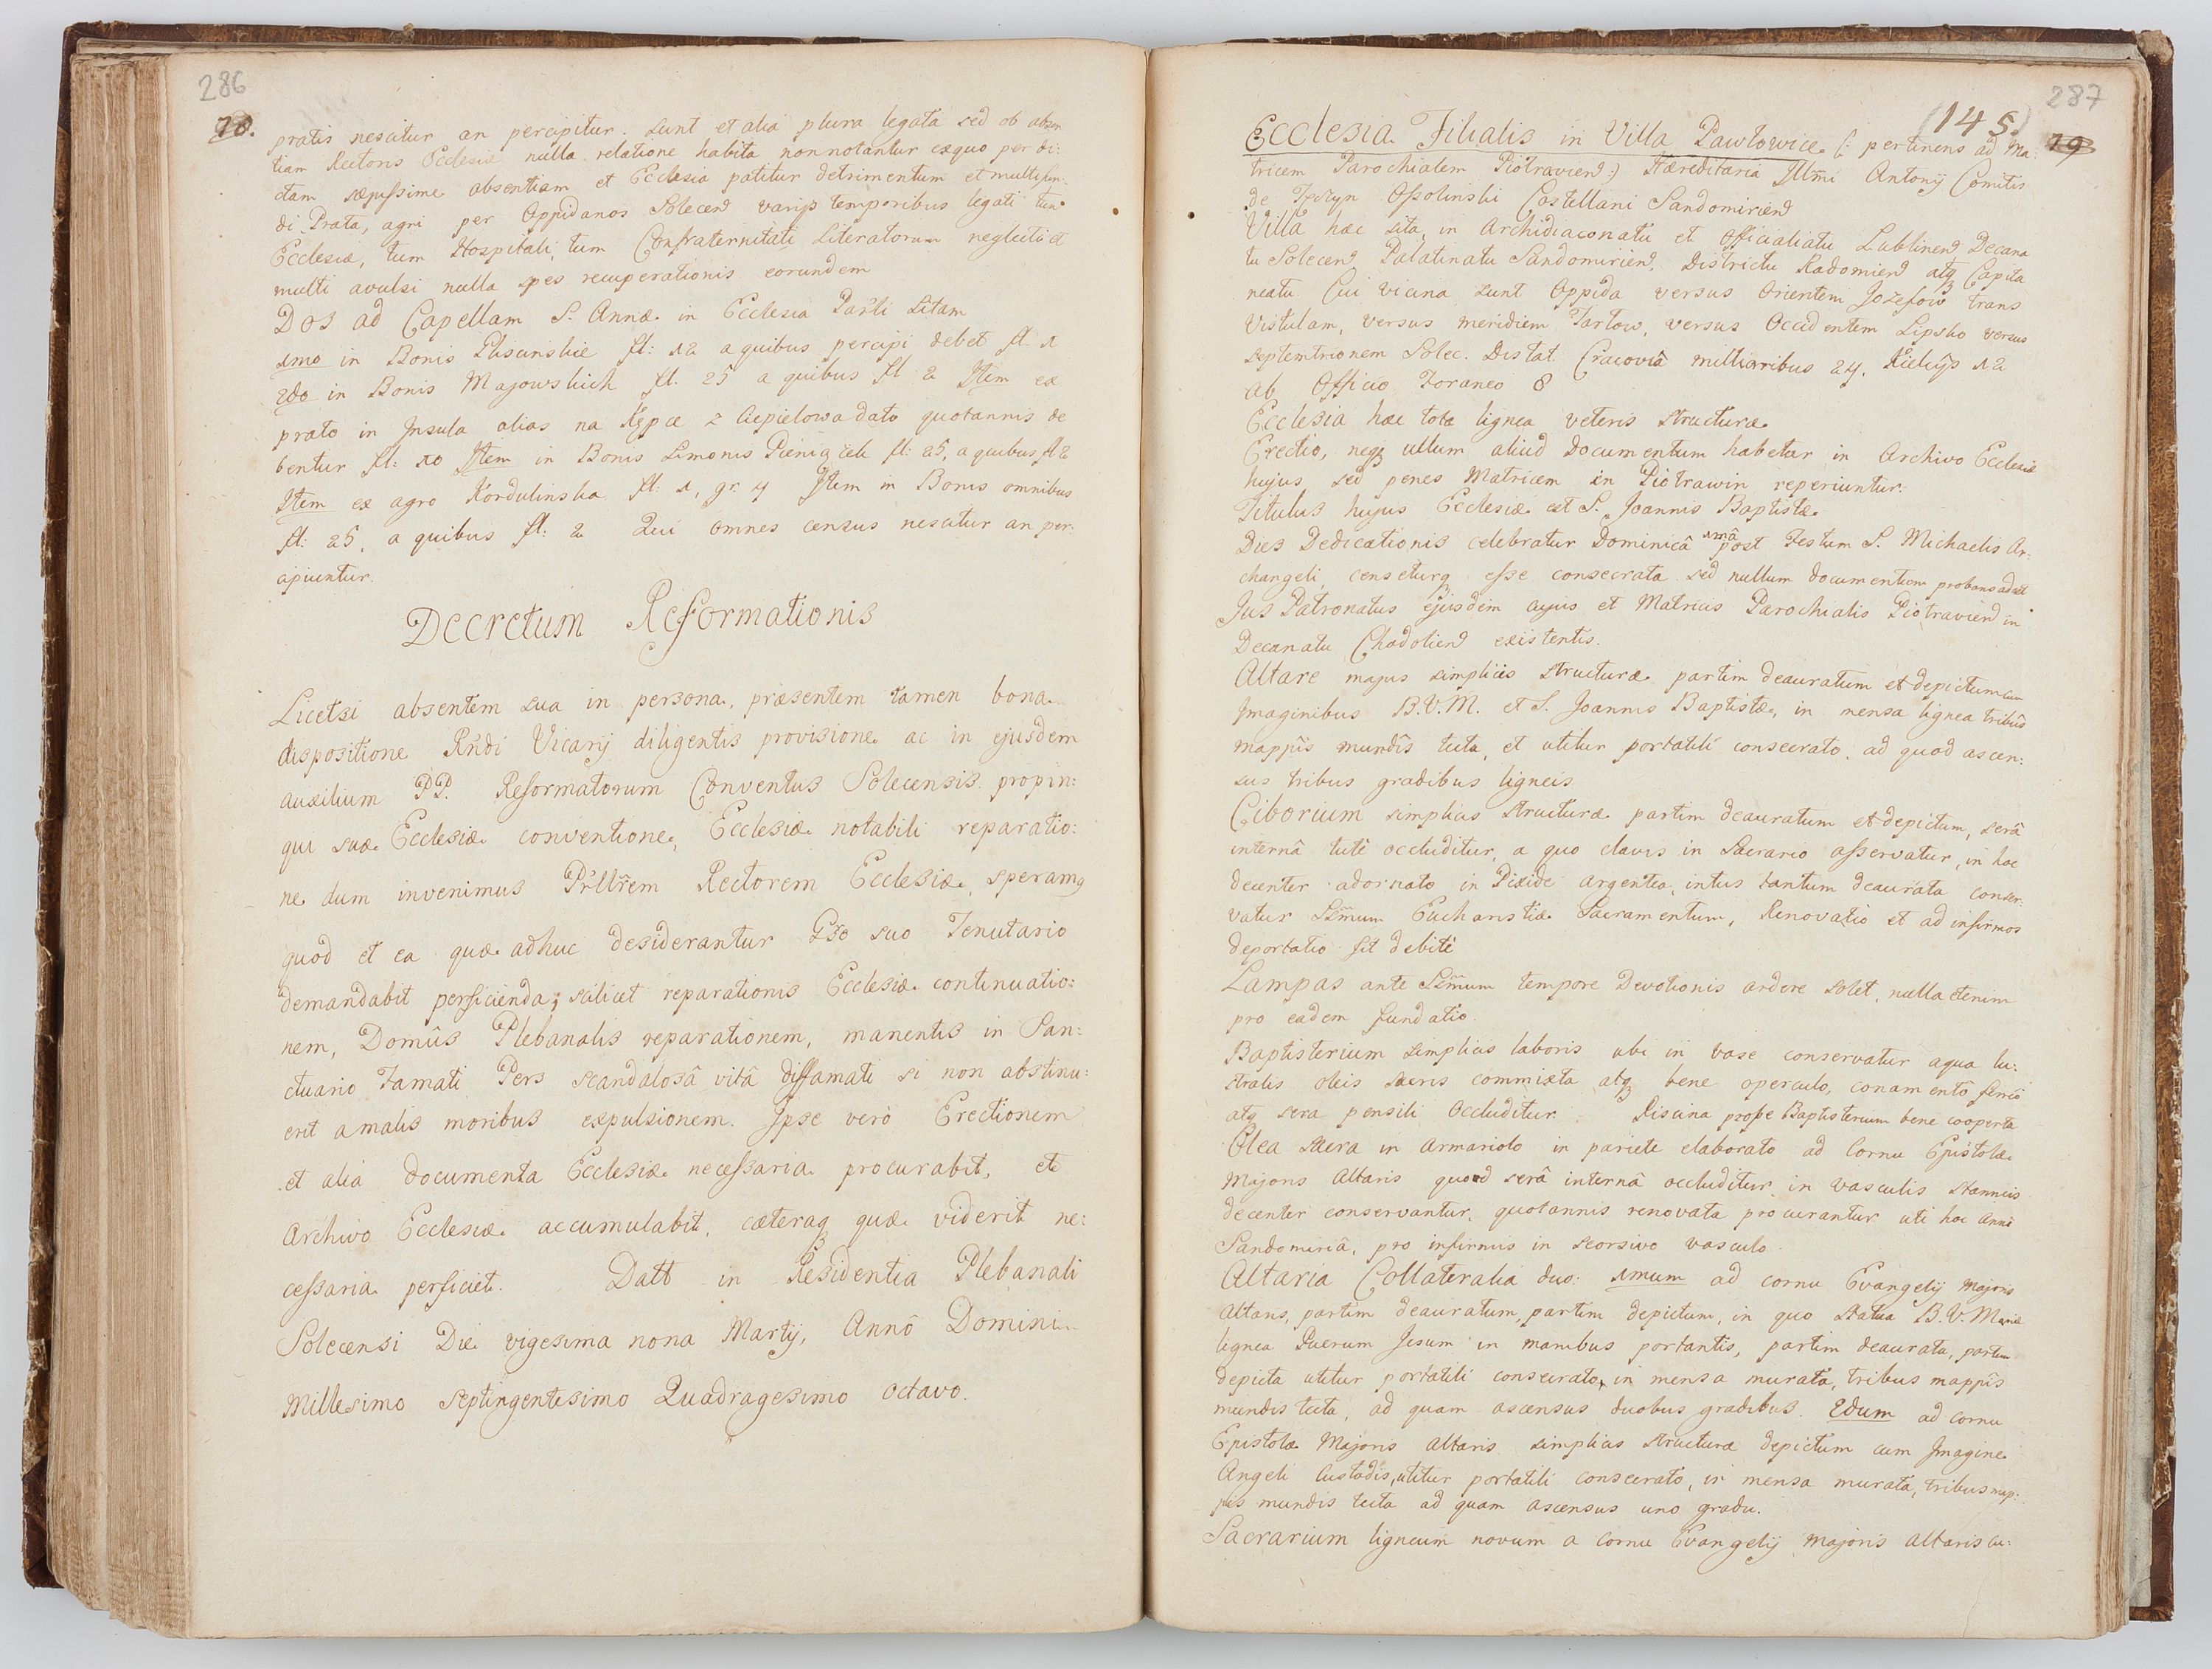 286
78.
pratis nescitur an percipitur. Sunt et alia plura legata sed ob absen
tiam Rectoris Ecclesiæ nulla relatione habita non notantur ex quo per di:
ctam sæpissime absentiam et Ecclesia patitur detrimentum et multi fun:
di Prata, agri per Oppidanos Solecens varijs temporibus legati tum
Ecclesiæ, tum Hospitali, tum Confraternitati Literatorum neglecti et
multi avulsi nulla spes recuperationis eorundem
Dos ad Capellam S. Annæ in Ecclesia Parli sitam
1mo in Bonis fl: 12 a quibus percipi debet fl. 1
2do in Bonis Majowskich fl. 25 a quibus fl 2 Item ex
prato in Insula alias na Kępce z Ciepielowa dato quotannis de
bentur fl: 10 Item in Bonis Simonis Pieniążek fl: 25, a quibus fl 2
Item ex agro Kordulinska fl: 1, gr. 4 Item in Bonis omnibus
fl: 25, a quibus fl: 2 Qui omnes census nescitur an per:
cipiuntur.
Decretum Reformationis
Licetsi absentem sua in persona, præsentem tamen bona
dispositione Rndi Vicarij diligentis provisione ac in ejusdem
auxilium PP. Reformatorum Conventus Solecensis propin:
qui suæ Ecclesiæ conventione, Ecclesiæ notabili reparatio:
ne dum invenimus Rectorem Ecclesiæ, speramq
quod et ea quæ adhuc desiderantur Gso suo Tenutario
demandabit perficienda; scilicet reparationis Ecclesiæ continuatio:
nem, Domûs Plebanalis reparationem, manentis in San:
ctuario Famati Pers scandalosâ vitâ diffamati si non abstinu:
erit a malis moribus expulsionem. Ipse verò Erectionem
et alia documenta Ecclesiæ necessaria procurabit, et
Archivo Ecclesiæ accumulabit, cæteraq quæ viderit ne:
cessaria perficiet. Datt in Residentia Plebanali
Solecensi Die vigesima nona Martij, Annô Domini
Millesimo Septingentesimo Quadragesimo Octavo.
287
(145)
79
Ecclesia Filialis in Villa Pawłowice (: pertinens ad Ma:
tricem Parochialem Piotraviens :) Hæreditaria Illmi Antonij Comitis
de Tęczyn Ossolinski Castellani Sandomiriens
Villa hæc sita, in Archidiaconatu et Officialatu Lublinens Decana
tu Solecens Palatinatu Sandomiriens, Districtu Radomiens atq Capita
neatu Cui vicina sunt Oppida versus Orientem Jozefow trans
Vistulam, versus meridiem Tarłow, versus Occidentem Lipsko versus
septemtrionem Solec. Distat Cracoviâ milliaribus 24, Kielcijs 12
ab Officio Foraneo 8
Ecclesia hæc tota lignea veteris structuræ
Erectio, neq ullum aliud Documentum habetur in Archivo Ecclesiæ
hujus sed penes Matricem in Piotrawin reperiuntur.
Titulus hujus Ecclesiæ est S. Joannis Baptistæ
Dies Dedicationis celebratur Dominicâ 1mâ post Festum S. Michaelis Ar:
changeli censeturq esse consecrata sed nullum documentum probans adest
Jus Patronatus ejusdem cujus et Matricis Parochialis Piotraviens in
Decanatu Chodoliens existentis.
Altare majus simplicis structuræ partim deauratum et depictum cum
Imaginibus B.V.M. et S. Joannis Baptistæ, in mensa lignea tribus
mappis mundis tecta, et utitur portatili consecrato, ad quod ascen:
sus tribus gradibus ligneis
Ciborium simplicis structuræ partim deauratum et depictum, serâ
internâ tutè occluditur, a quo clavis in Sacrario asservatur, in hoc
decenter adornato in Pixide argentea, intus tantum deaurata conser:
vatur SSmum Eucharistiæ Sacramentum, Renovatio et ad infirmos
deportatio fit debitè
Lampas ante SSmum tempore Devotionis ardere solet, nulla etenim
pro eadem fundatio.
Baptisterium simplicis laboris ubi in vase conservatur aqua lu:
stralis oleis sacris commixta atq bene operculo, conamentô ferrô
atq sera pensili occluditur. Piscina prope Baptisterium bene cooperta
Olea Sacra in armariolo in pariete elaborato ad Cornu Epistolæ
Majoris Altaris quod serâ internâ occluditur in vasculis stanneis
decenter conservantur, quotannis renovata procurantur uti hoc Annô
Sandomiriâ, pro infirmis in seorsivo vasculo.
Altaria Collateralia duo: 1mum ad cornu Evangelij Majoris
Altaris, partim deauratum, partim depictum, in quo Statua B.V. Mariæ
lignea Puerum Jesum in manibus portantis, partim deaurata, partim
depicta utitur portatili consecrato, in mensa murata, tribus mappis
mundis tecta, ad quam ascensus duobus gradibus. 2dum ad cornu
Epistolæ Majoris Altaris simplicis structuræ depictum cum Imagine
Angeli Custodis, utitur portatili consecrato, in mensa murata, tribus map:
pis mundis tecta ad quam ascensus uno gradu.
Sacrarium ligneum novum a cornu Evangelij majoris altaris cu: